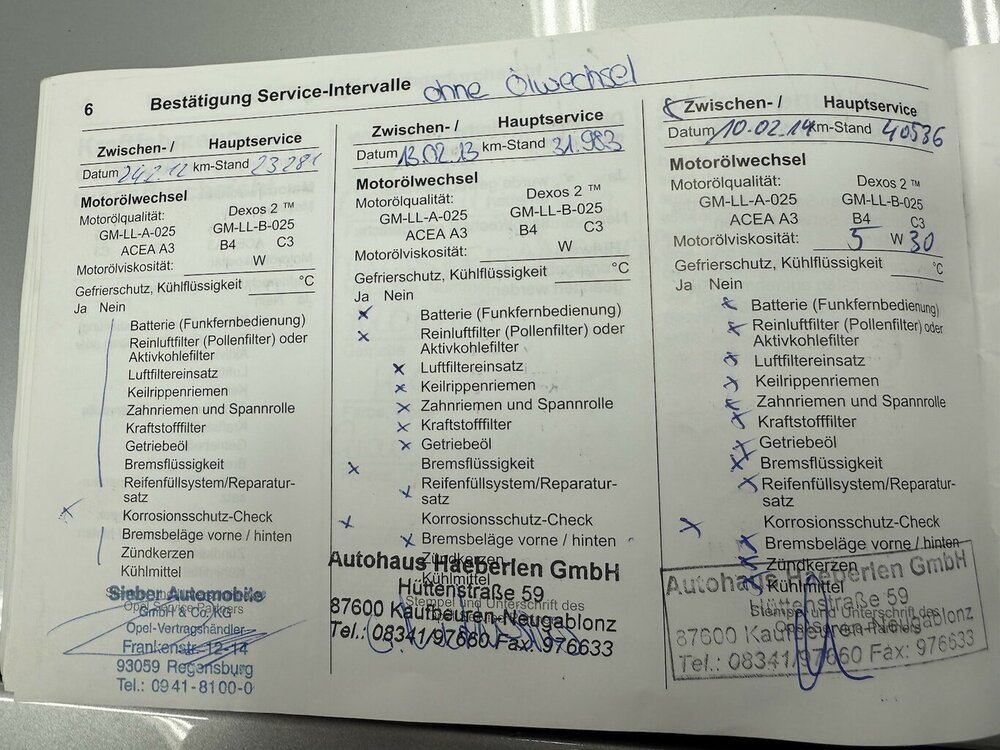 6 Bestätigung Service-Intervalle ohne Ölwechsel
Zwischen- / Hauptservice
Datum 24.2.12 km-Stand 23281
Motorölwechsel
Motorölqualität: Dexos 2 ™
GM-LL-A-025 GM-LL-B-025
ACEA A3 B4 C3
Motorölviskosität: W
Gefrierschutz, Kühlflüssigkeit °C
Ja Nein
Batterie (Funkfernbedienung)
Reinluftfilter (Pollenfilter) oder
Aktivkohlefilter
Luftfiltereinsatz
Keilrippenriemen
Zahnriemen und Spannrolle
Kraftstofffilter
Getriebeöl
Bremsflüssigkeit
Reifenfüllsystem/Reparatur-
satz
x Korrosionsschutz-Check
Bremsbeläge vorne / hinten
Zündkerzen
Kühlmittel
Sieber Automobile
GmbH & Co. KG
Opel-Vertragshändler
Frankenstr. 12-14
93059 Regensburg
Tel.: 0941-8100-0
Zwischen- / Hauptservice
Datum 13.02.13 km-Stand 31.983
Motorölwechsel
Motorölqualität: Dexos 2 ™
GM-LL-A-025 GM-LL-B-025
ACEA A3 B4 C3
Motorölviskosität: W
Gefrierschutz, Kühlflüssigkeit °C
Ja Nein
x Batterie (Funkfernbedienung)
x Reinluftfilter (Pollenfilter) oder
Aktivkohlefilter
x Luftfiltereinsatz
x Keilrippenriemen
x Zahnriemen und Spannrolle
x Kraftstofffilter
x Getriebeöl
x Bremsflüssigkeit
x Reifenfüllsystem/Reparatur-
satz
x Korrosionsschutz-Check
x Bremsbeläge vorne / hinten
Zündkerzen
Kühlmittel
Autohaus Haeberlen GmbH
Hüttenstraße 59
Stempel und Unterschrift des
87600 Kaufbeuren-Neugablonz
Tel.: 08341/97660 Fax: 976633
x Zwischen- / Hauptservice
Datum 10.02.14 km-Stand 40536
Motorölwechsel
Motorölqualität: Dexos 2 ™
GM-LL-A-025 GM-LL-B-025
ACEA A3 B4 C3
Motorölviskosität: 5 W 30
Gefrierschutz, Kühlflüssigkeit °C
Ja Nein
x Batterie (Funkfernbedienung)
x Reinluftfilter (Pollenfilter) oder
Aktivkohlefilter
x Luftfiltereinsatz
x Keilrippenriemen
x Zahnriemen und Spannrolle
x Kraftstofffilter
x Getriebeöl
x Bremsflüssigkeit
x Reifenfüllsystem/Reparatur-
satz
x Korrosionsschutz-Check
x Bremsbeläge vorne / hinten
x Zündkerzen
x Kühlmittel
Autohaus Haeberlen GmbH
Hüttenstraße 59
Stempel und Unterschrift des
87600 Kaufbeuren-Neugablonz
Tel.: 08341/97660 Fax: 976633